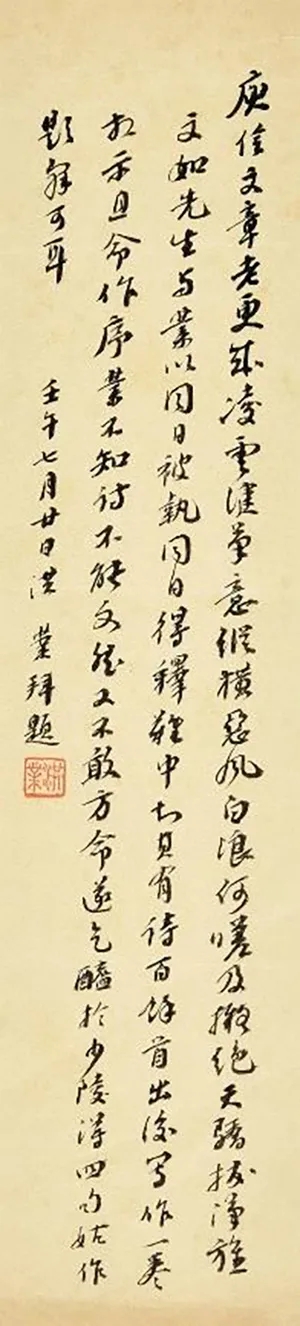 庾信文章老更成凌雲健筆意縱橫惡風白浪何嗟及撥絕天驕拔漢旌
文如先生与業以同日被執同日得釋難中知其有詩百餘首出後写作一卷
相示且命作序業不知詩不能文然又不敢方命遂乞醯於少陵得四句姑作
題解可耳 壬午七月廿日洪業拜題
洪業